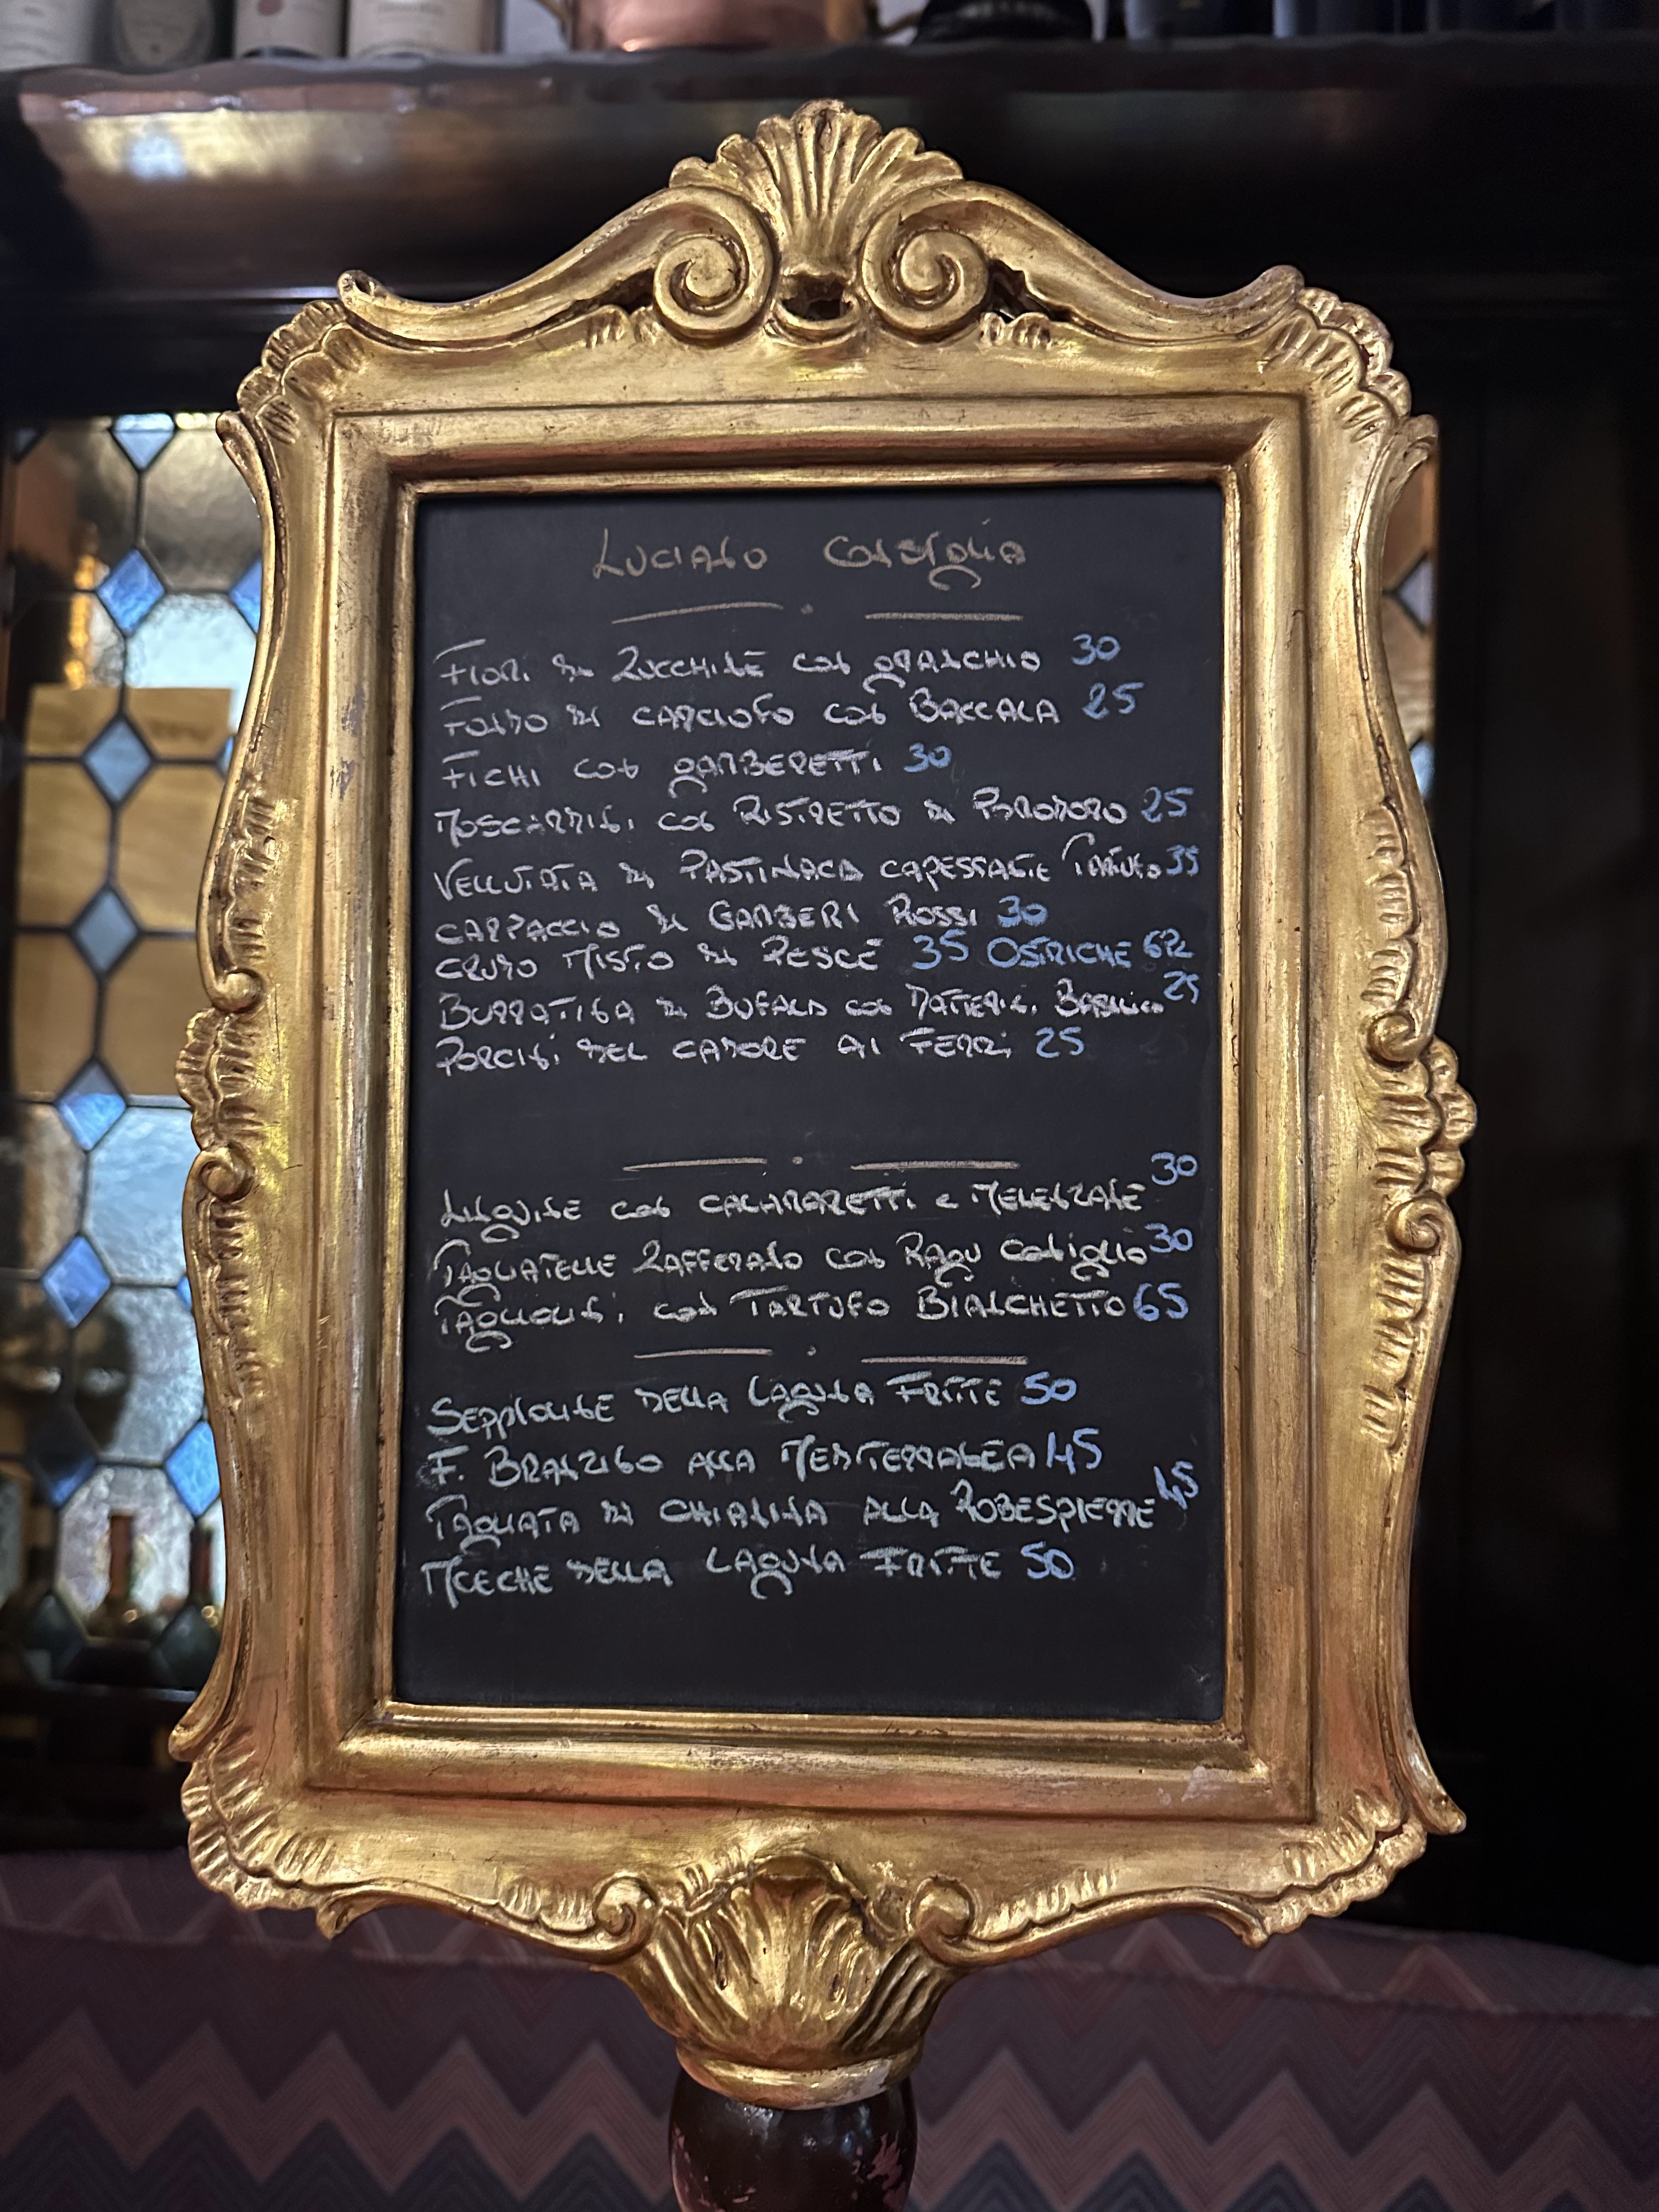 Luciano Consiglia
Fiori di Zucchine con granchio 30
Fondo di carciofo con Baccala 25
Fichi con gamberetti 30
Moscardini con Ristretto di Pomodoro 25
Vellutata di Pastinaca capessante Tartufo 35
Carpaccio di Gamberi Rossi 30
Crudo Misto di Pesce 35 Ostriche 6
Burratina di Bufala con Datterini Basilico 25
Porcini del cadore ai Ferri 25
Linguine con calamaretti e Melenzane 30
Tagliatelle Zafferano con Ragu coniglio 30
Tagliolini con Tartufo Bianchetto 65
Seppioline della Laguna Fritte 50
F. Branzino alla Mediterranea 45
Tagliata di Chianina alla Robespierre 45
Moeche della Laguna Fritte 50